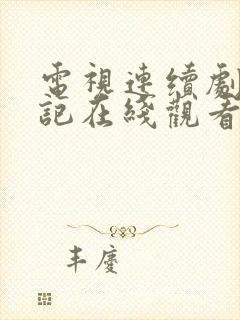 電視連續劇
記在綫觀看
丰慶